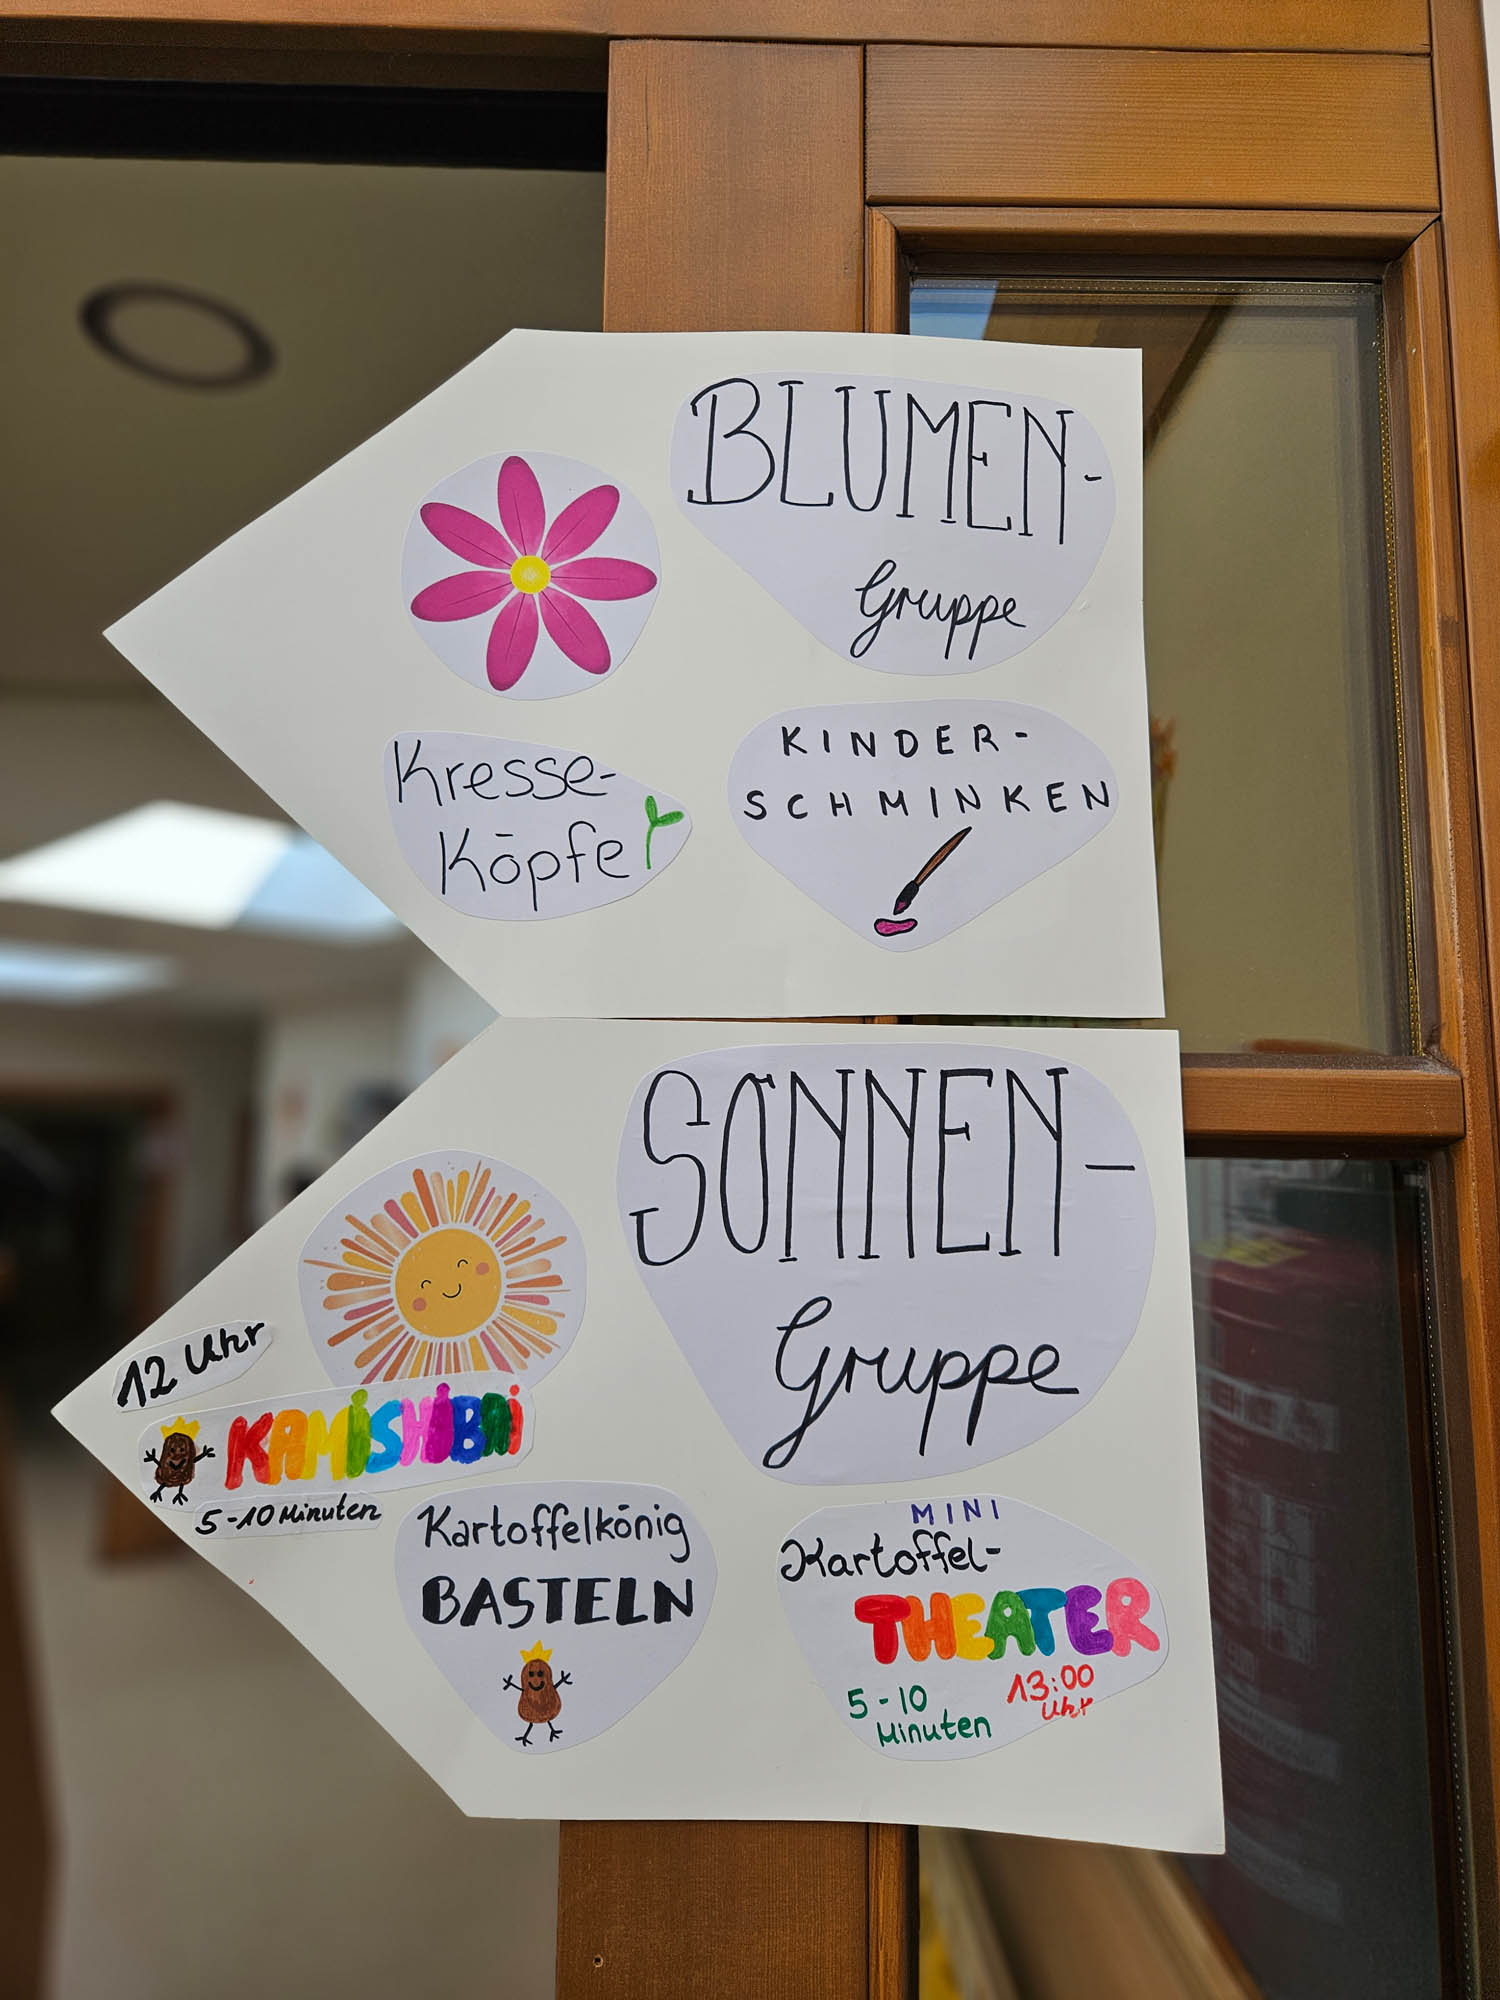 BLUMEN-
Gruppe
Kresse-
Köpfe
KINDER-
SCHMINKEN
SONNEN-
Gruppe
12 Uhr
KAMiSHiBAi
5-10 Minuten
Kartoffelkönig
BASTELN
MINI
Kartoffel-
THEATER
5-10
Minuten
13:00
Uhr